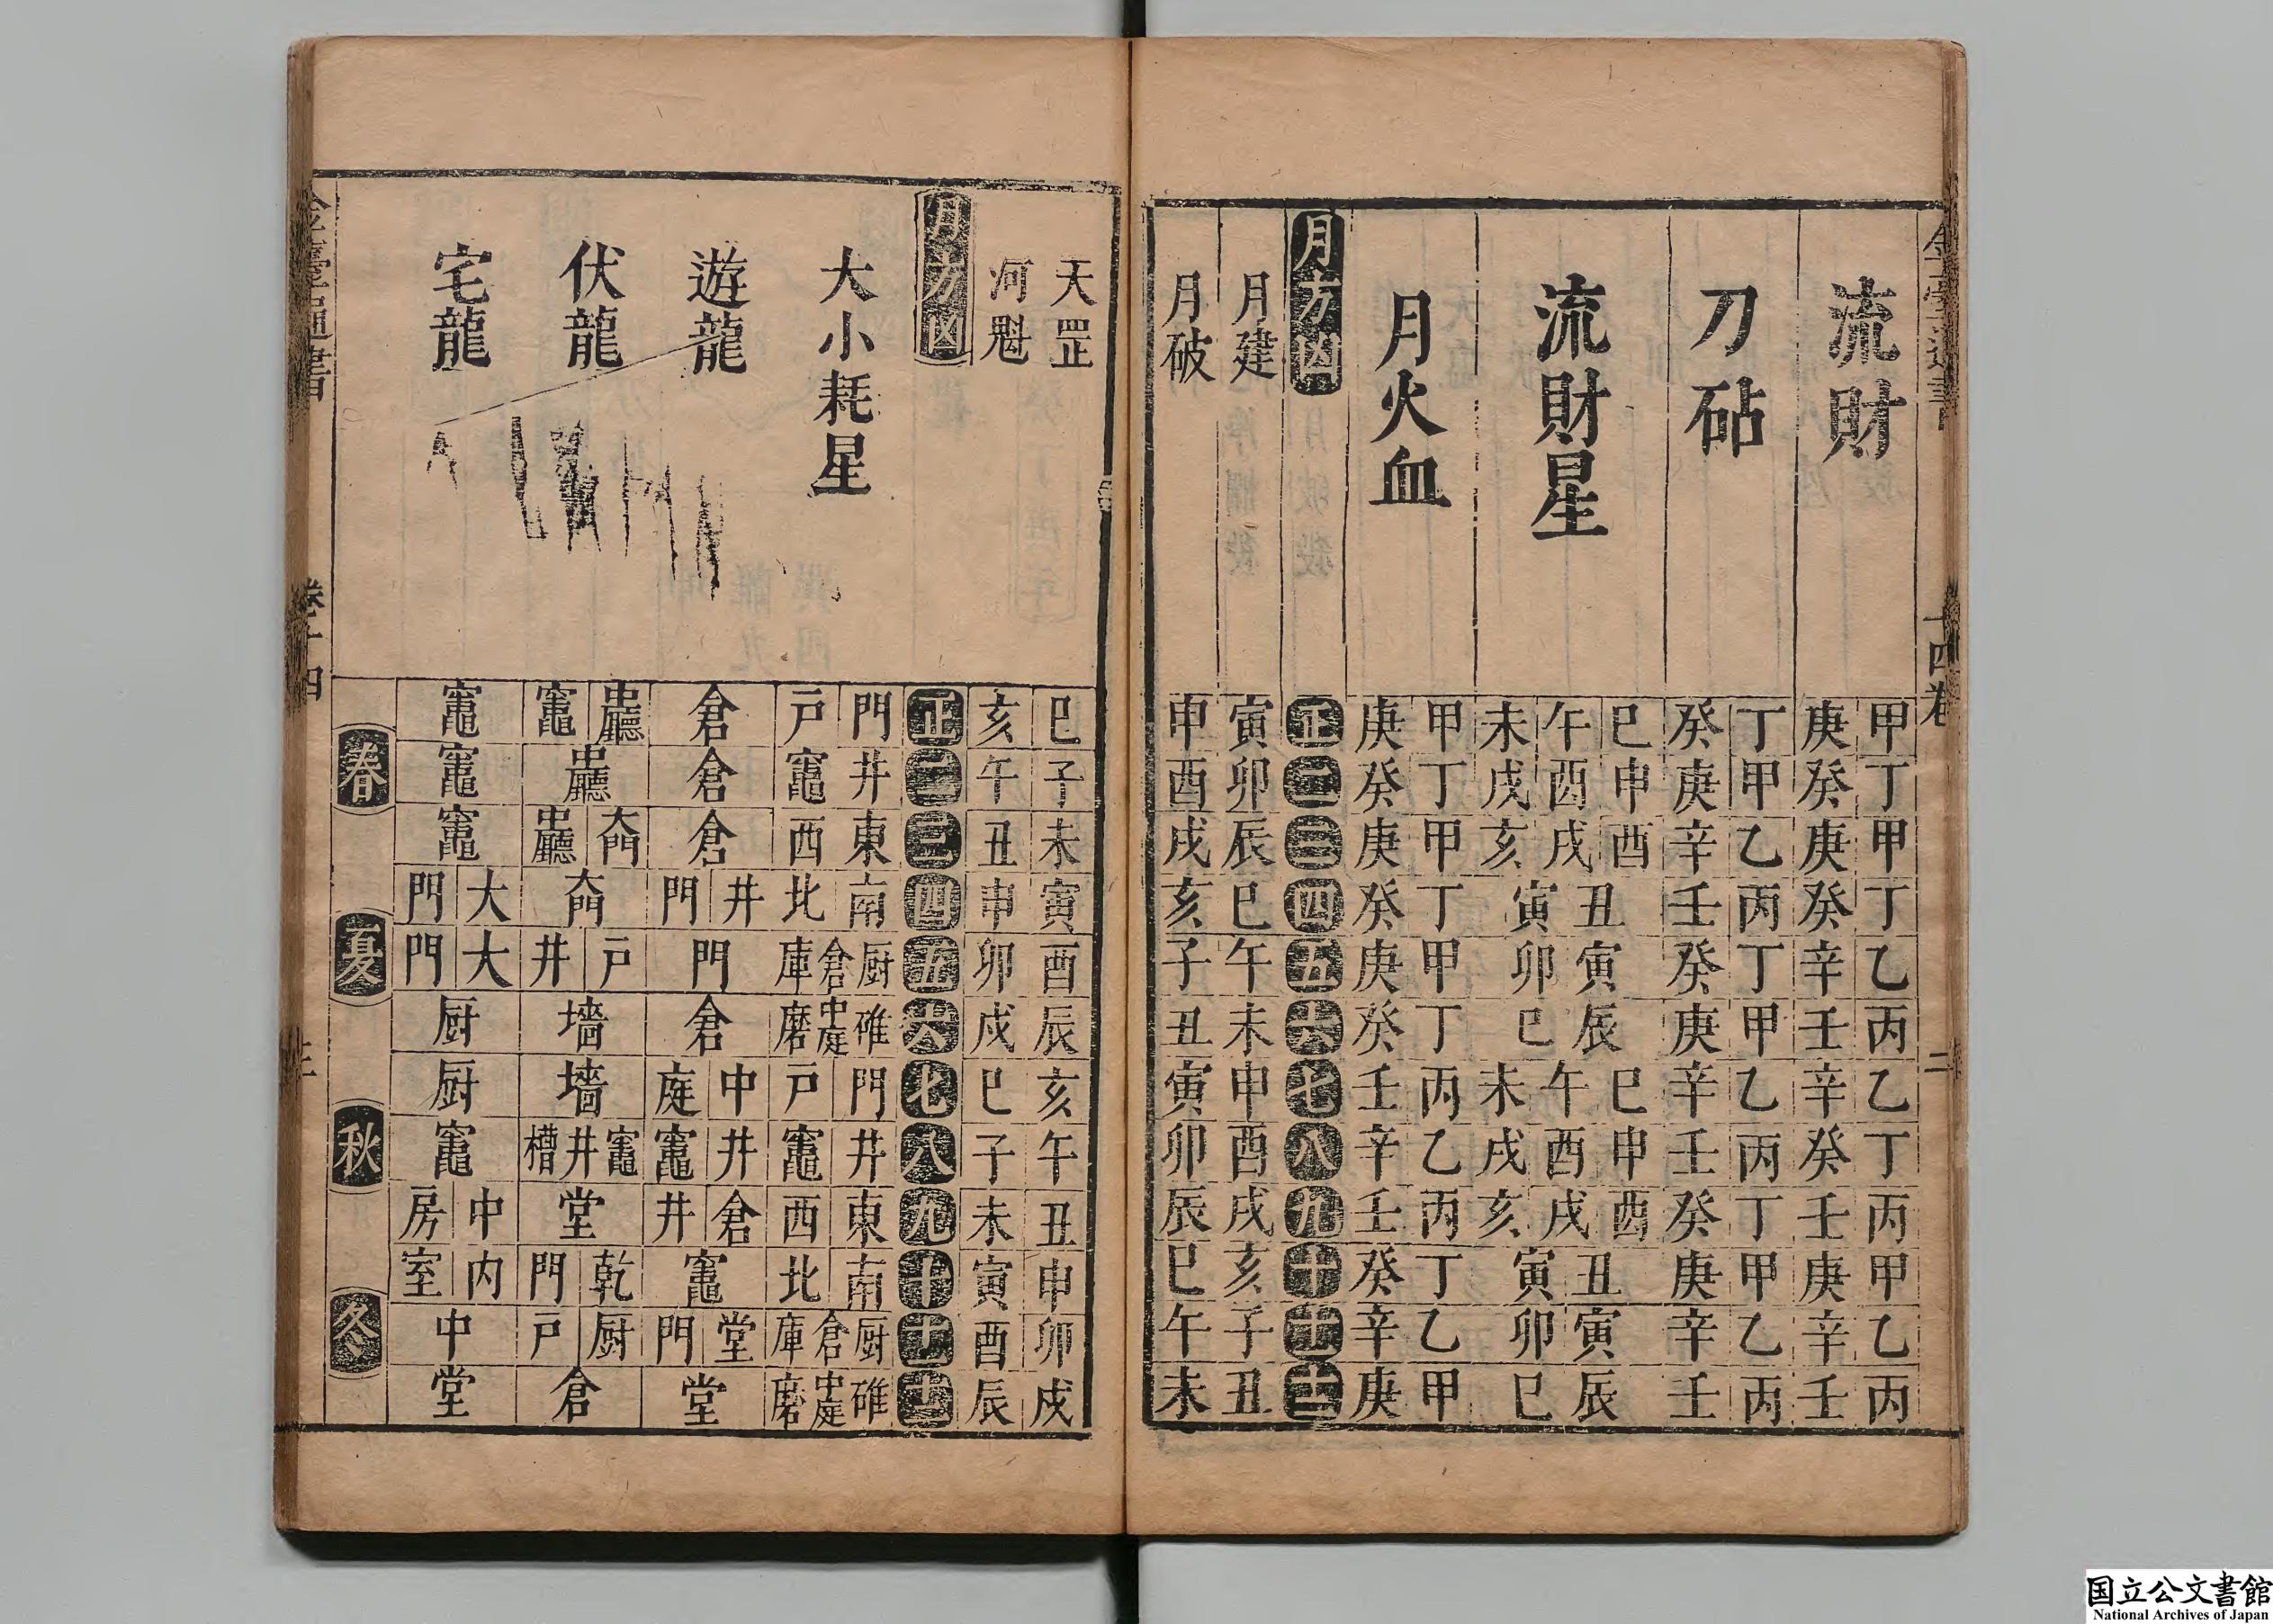 流財
甲丁甲丁乙丙乙丁丙甲乙丙
庚癸庚癸辛壬辛癸壬庚辛壬
刀砧
丁甲乙丙丁甲乙丙丁甲乙丙
癸庚辛壬癸庚辛壬癸庚辛壬
流財星
巳午未
申酉戌
酉戌亥
丑寅
寅卯
辰巳
巳午未
申酉戌
酉戌亥
丑寅
寅卯
辰巳
月火血
甲丁甲丁甲丁丙乙丙丁乙甲
庚癸庚癸庚癸壬辛壬癸辛庚
月方凶
正二三四五六七八九十十一十二
月建
寅卯辰巳午未申酉戌亥子丑
月破
申酉戌亥子丑寅卯辰巳午未
十四卷
二
天罡
巳子未寅酉辰亥午丑申卯戌
河魁
亥午丑申卯戌巳子未寅酉辰
月方凶
正二三四五六七八九十十一十二
大小耗星
門戶
井竈
東西
南北
厨倉庫
碓中庭磨
門戶
井竈
東西
南北
厨倉庫
碓中庭磨
遊龍
倉
倉
倉
井門
門
倉
中庭
井竈
倉井
竈
堂門
堂
伏龍
中廳竈
中廳
大門中廳
大門
戶井
墻
墻
竈井槽
堂
乾門
厨戶
倉
宅龍
竈
竈
竈
大門
大門
厨
厨
竈
中房
内室
中
堂
春
夏
秋
冬
卷十四
国立公文書館
National Archives of Japan